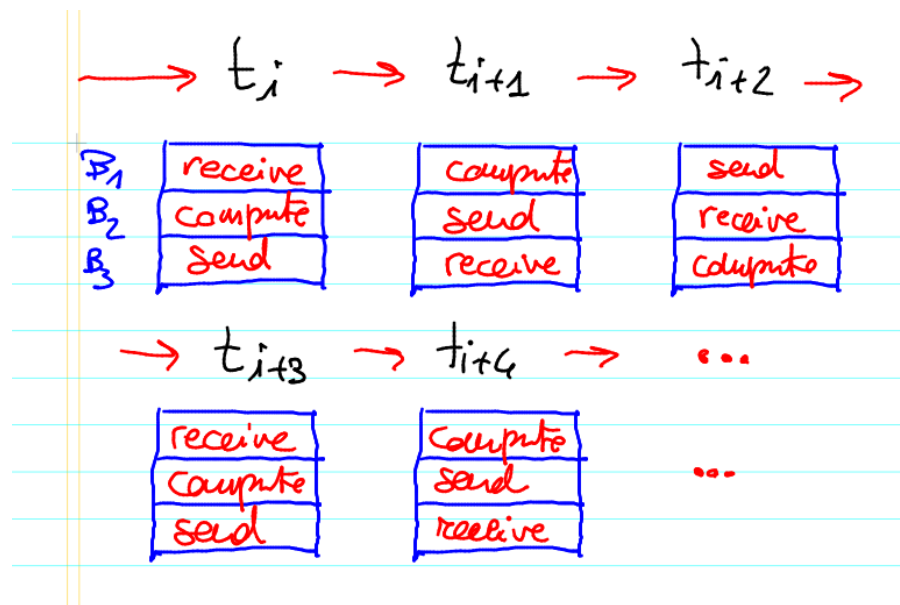 → tᵢ → tᵢ₊₁ → tᵢ₊₂ →
B₁ receive compute send
B₂ compute send receive
B₃ send receive compute
→ tᵢ₊₃ → tᵢ₊₄ → ...
receive compute
compute send ...
send receive